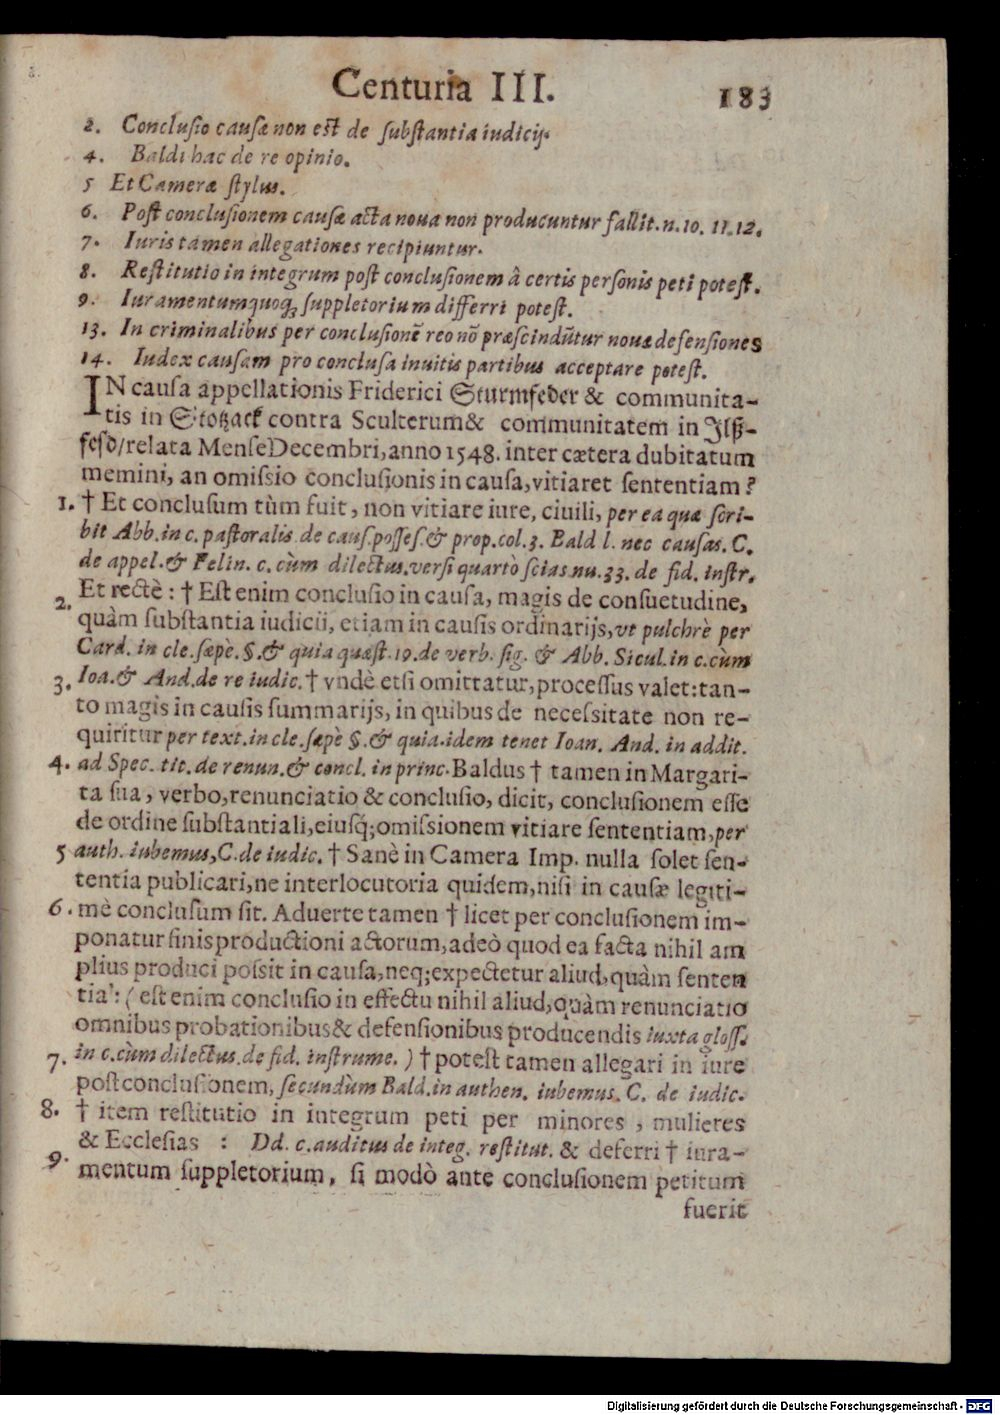 Centuria III. 183
2. Conclusio causæ non est de substantia iudicij.
4. Baldi hac de re opinio.
5 Et Cameræ stylus.
6. Post conclusionem causæ acta noua non producuntur fallit. n. 10. 11. 12.
7. Iuris tamen allegationes recipiuntur.
8. Restitutio in integrum post conclusionem â certis personis peti potest.
9. Iuramentumquoq; suppletorium differri potest.
13. In criminalibus per conclusionē reo nō præscindūtur nouæ defensiones
14. Iudex causam pro conclusa inuitis partibus acceptare potest.
IN causa appellationis Friderici Sturmfeder & communita-
tis in Stotzach contra Sculterum & communitatem in Ilß-
feld/relata Mense Decembri, anno 1548. inter cætera dubitatum
memini, an omissio conclusionis in causa, vitiaret sententiam?
1. † Et conclusum tùm fuit, non vitiare iure, ciuili, per ea quæ scri-
bit Abb. in c. pastoralis de caus. posses. & prop. col. 3. Bald l. nec causas. C.
de appel. & Felin. c. cùm dilectus. versi quartò scias. nu. 33. de fid. instr.
2. Et rectè: † Est enim conclusio in causa, magis de consuetudine,
quàm substantia iudicii, etiam in causis ordinarijs, vt pulchrè per
Card. in cle. sæpè. §. & quia quæst. 19. de verb. sig. & Abb. Sicul. in c. cùm
3. Ioa. & And. de re iudic. † vndè etsi omittatur, processus valet: tan-
to magis in causis summarijs, in quibus de necessitate non re-
quiritur per text. in cle. sæpè §. & quia. idem tenet Ioan. And. in addit.
4. ad Spec. tit. de renun. & concl. in princ. Baldus † tamen in Margari-
ta sua, verbo, renunciatio & conclusio, dicit, conclusionem esse
de ordine substantiali, eiusq́; omissionem vitiare sententiam, per
5 auth. iubemus, C. de iudic. † Sanè in Camera Imp. nulla solet sen-
tentia publicari, ne interlocutoria quidem, nisi in causæ legiti-
6. mè conclusum sit. Aduerte tamen † licet per conclusionem im-
ponatur finis productioni actorum, adeò quod ea facta nihil am
plius produci possit in causa, neq; expectetur aliud, quàm senten
tia: (est enim conclusio in effectu nihil aliud, quàm renunciatio
omnibus probationibus & defensionibus producendis iuxta gloss.
7. in c. cùm dilectus. de fid. instrume. ) † potest tamen allegari in iure
post conclusionem, secundùm Bald. in authen. iubemus. C. de iudic.
8. † item restitutio in integrum peti per minores, mulieres
& Ecclesias : Dd. c. auditus de integ. restitut. & deferri † iura-
9. mentum suppletorium, si modò ante conclusionem petitum
fuerit
Digitalisierung gefördert durch die Deutsche Forschungsgemeinschaft - DFG